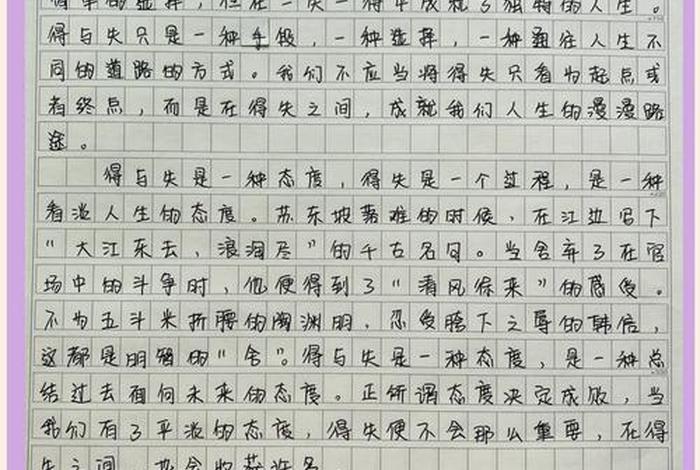 简单的选择，但在一失一得中成就了独特的人生。
得与失只是一种手段，一种选择，一种通往人生不
同的道路的方式。我们不应当将得失只看为起点或
者终点，而是在得失之间，成就我们人生的漫漫路
途。
得与失是一种态度，得失是一个过程，是一种
看淡人生的态度。苏东坡落难的时候，在江边写下
“大江东去，浪淘尽”的千古名句。当舍弃了在官
场中的斗争时，他便得到了“清风徐来”的感受。
不为五斗米折腰的陶渊明，忍受胯下之辱的韩信，
这都是明智的“舍”。得与失是一种态度，是一种总
结过去面向未来的态度。正所谓态度决定成败，当
我们有了平淡的态度，得失便不会那么重要，在得
失之间，也会收获许多。